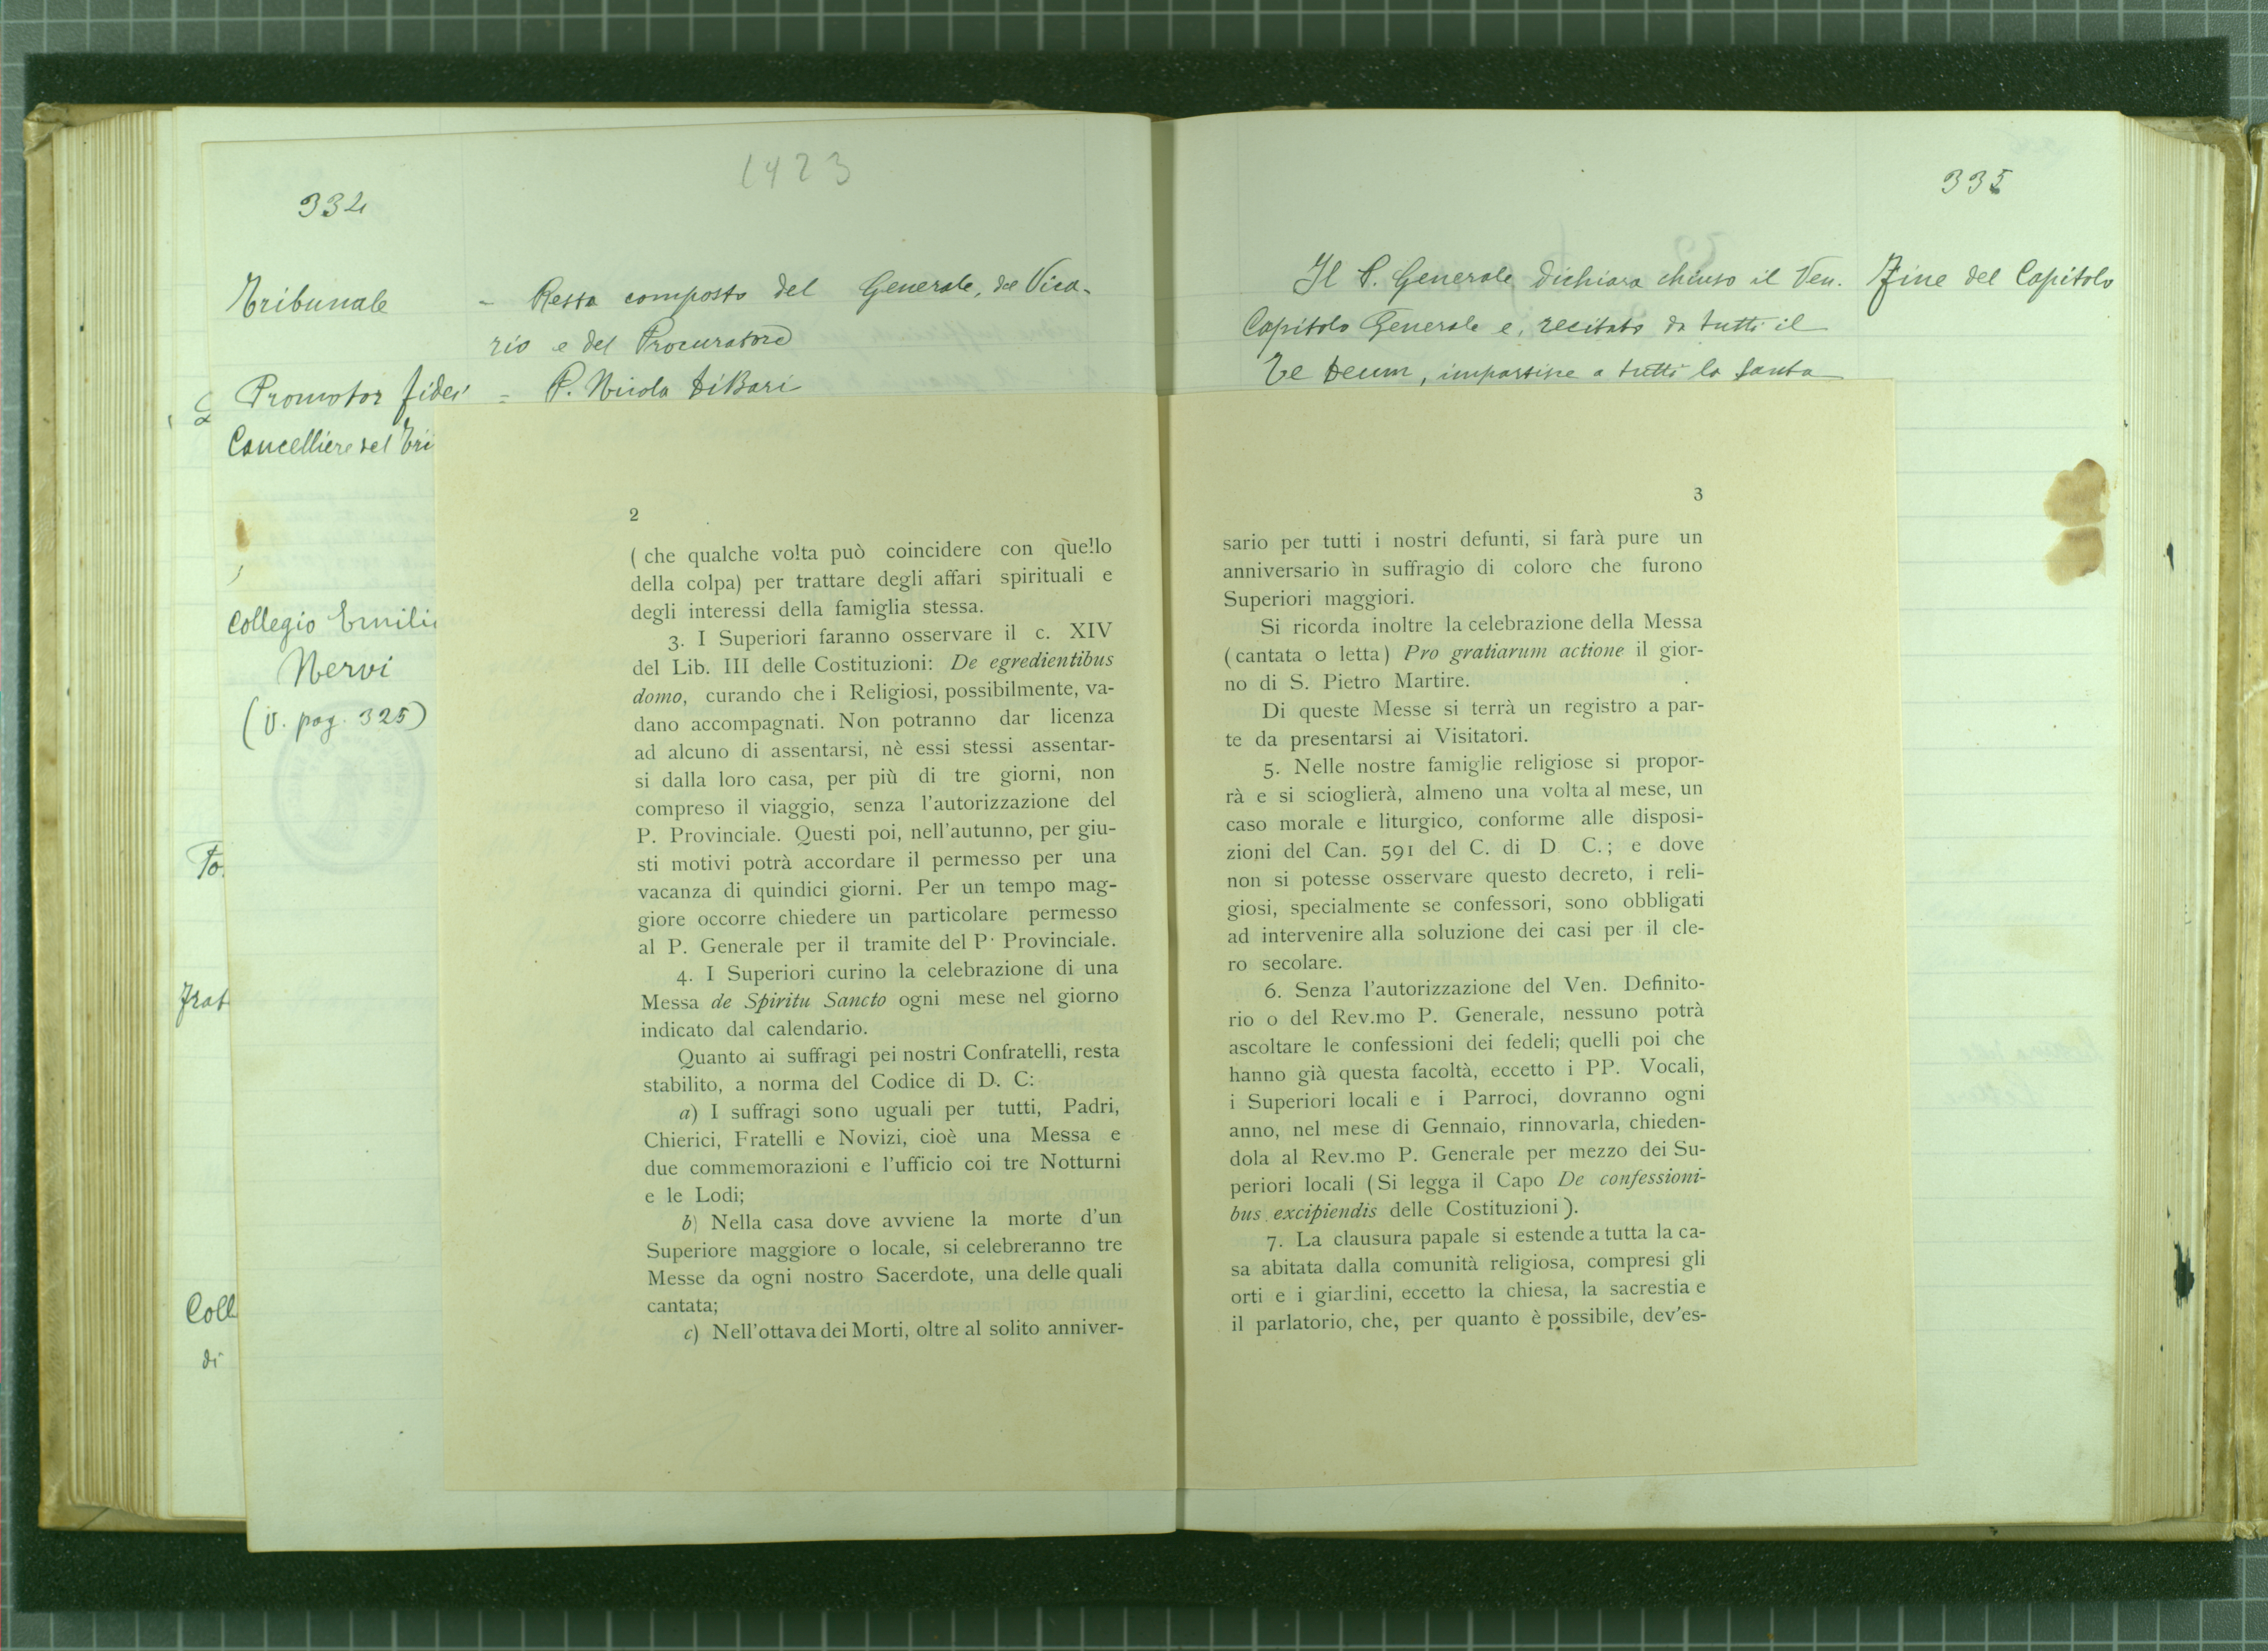 1423
334
Tribunale - Resta composto del Generale, del Vica-
rio e del Procuratore
Promotor fidei = P. Nicola DiBari
Cancelliere del Tri
Collegio Emili
Nervi
(V. pag. 325)
To
Frat
Coll
di
2
( che qualche volta può coincidere con quello
della colpa) per trattare degli affari spirituali e
degli interessi della famiglia stessa.
3. I Superiori faranno osservare il c. XIV
del Lib. III delle Costituzioni: De egredientibus
domo, curando che i Religiosi, possibilmente, va-
dano accompagnati. Non potranno dar licenza
ad alcuno di assentarsi, nè essi stessi assentar-
si dalla loro casa, per più di tre giorni, non
compreso il viaggio, senza l'autorizzazione del
P. Provinciale. Questi poi, nell'autunno, per giu-
sti motivi potrà accordare il permesso per una
vacanza di quindici giorni. Per un tempo mag-
giore occorre chiedere un particolare permesso
al P. Generale per il tramite del P. Provinciale.
4. I Superiori curino la celebrazione di una
Messa de Spiritu Sancto ogni mese nel giorno
indicato dal calendario.
Quanto ai suffragi pei nostri Confratelli, resta
stabilito, a norma del Codice di D. C:
a) I suffragi sono uguali per tutti, Padri,
Chierici, Fratelli e Novizi, cioè una Messa e
due commemorazioni e l'ufficio coi tre Notturni
e le Lodi;
b) Nella casa dove avviene la morte d'un
Superiore maggiore o locale, si celebreranno tre
Messe da ogni nostro Sacerdote, una delle quali
cantata;
c) Nell'ottava dei Morti, oltre al solito anniver-
335
Il P. Generale dichiara chiuso il Ven. Fine del Capitolo
Capitolo Generale e, recitato da tutti il
Te Deum, impartisce a tutti la santa
3
sario per tutti i nostri defunti, si farà pure un
anniversario in suffragio di coloro che furono
Superiori maggiori.
Si ricorda inoltre la celebrazione della Messa
(cantata o letta) Pro gratiarum actione il gior-
no di S. Pietro Martire.
Di queste Messe si terrà un registro a par-
te da presentarsi ai Visitatori.
5. Nelle nostre famiglie religiose si propor-
rà e si scioglierà, almeno una volta al mese, un
caso morale e liturgico, conforme alle disposi-
zioni del Can. 591 del C. di D C.; e dove
non si potesse osservare questo decreto, i reli-
giosi, specialmente se confessori, sono obbligati
ad intervenire alla soluzione dei casi per il cle-
ro secolare.
6. Senza l'autorizzazione del Ven. Definito-
rio o del Rev.mo P. Generale, nessuno potrà
ascoltare le confessioni dei fedeli; quelli poi che
hanno già questa facoltà, eccetto i PP. Vocali,
i Superiori locali e i Parroci, dovranno ogni
anno, nel mese di Gennaio, rinnovarla, chieden-
dola al Rev.mo P. Generale per mezzo dei Su-
periori locali (Si legga il Capo De confessioni-
bus excipiendis delle Costituzioni).
7. La clausura papale si estende a tutta la ca-
sa abitata dalla comunità religiosa, compresi gli
orti e i giardini, eccetto la chiesa, la sacrestia e
il parlatorio, che, per quanto è possibile, dev'es-